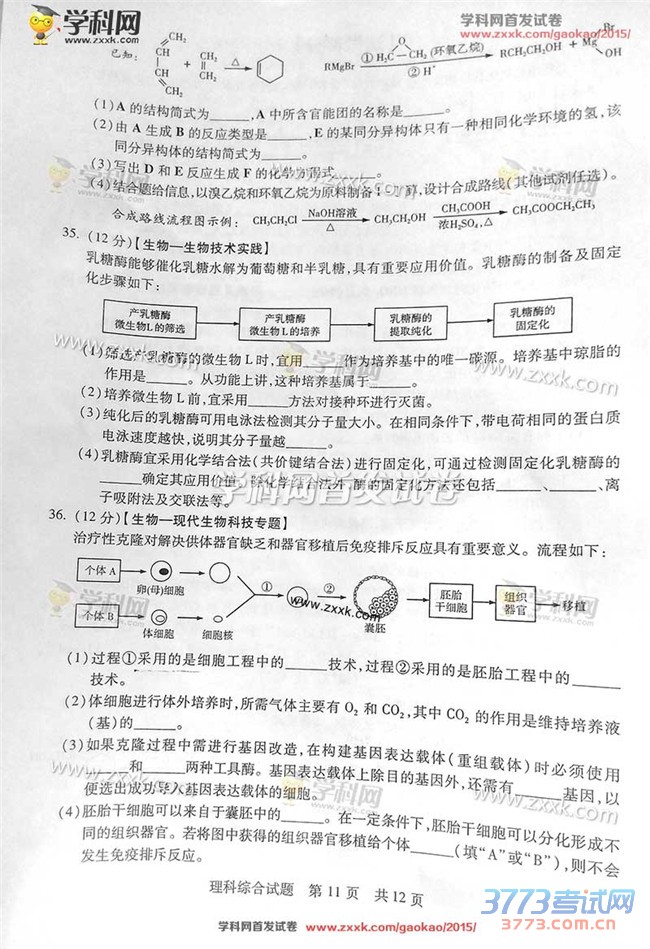 学科网
www.zxxk.com
学科网首发试卷
www.zxxk.com/gaokao/2015/
已知：
CH₂ CH CH CH₂ + CH₂ CH₂ △
RMgBr ① H₂C—CH₂ (环氧乙烷) O ② H⁺ RCH₂CH₂OH + Mg Br OH
(1) A 的结构简式为______，A 中所含官能团的名称是______。
(2) 由 A 生成 B 的反应类型是______，E 的某同分异构体只有一种相同化学环境的氢，该
同分异构体的结构简式为______。
(3) 写出 D 和 E 反应生成 F 的化学方程式______。
(4) 结合题给信息，以溴乙烷和环氧乙烷为原料制备1-丁醇，设计合成路线(其他试剂任选)。
合成路线流程图示例：CH₃CH₂Cl NaOH溶液 △ CH₃CH₂OH CH₃COOH 浓H₂SO₄,△ CH₃COOCH₂CH₃
35. (12 分)【生物—生物技术实践】
乳糖酶能够催化乳糖水解为葡萄糖和半乳糖，具有重要应用价值。乳糖酶的制备及固定
化步骤如下：
产乳糖酶
微生物L的筛选
产乳糖酶
微生物L的培养
乳糖酶的
提取纯化
乳糖酶的
固定化
(1) 筛选产乳糖酶的微生物 L 时，宜用______作为培养基中的唯一碳源。培养基中琼脂的
作用是______。从功能上讲，这种培养基属于______。
(2) 培养微生物 L 前，宜采用______方法对接种环进行灭菌。
(3) 纯化后的乳糖酶可用电泳法检测其分子量大小。在相同条件下，带电荷相同的蛋白质
电泳速度越快，说明其分子量越______。
(4) 乳糖酶宜采用化学结合法(共价键结合法)进行固定化，可通过检测固定化乳糖酶的
______确定其应用价值。除化学结合法外，酶的固定化方法还包括______、______、离
子吸附法及交联法等。
学科网首发试卷
36. (12 分)【生物—现代生物科技专题】
治疗性克隆对解决供体器官缺乏和器官移植后免疫排斥反应具有重要意义。流程如下：
个体 A
卵(母)细胞
个体 B
体细胞
细胞核
①
②
囊胚
胚胎
干细胞
组织
器官
移植
www.zxxk.com
(1) 过程①采用的是细胞工程中的______技术，过程②采用的是胚胎工程中的______
技术。
(2) 体细胞进行体外培养时，所需气体主要有 O₂ 和 CO₂，其中 CO₂ 的作用是维持培养液
(基)的______。
(3) 如果克隆过程中需进行基因改造，在构建基因表达载体(重组载体)时必须使用
______和______两种工具酶。基因表达载体上除目的基因外，还需有______基因，以
便选出成功导入基因表达载体的细胞。
(4) 胚胎干细胞可以来自于囊胚中的______。在一定条件下，胚胎干细胞可以分化形成不
同的组织器官。若将图中获得的组织器官移植给个体______(填“A”或“B”)，则不会
发生免疫排斥反应。
理科综合试题 第 11 页 共 12 页
学科网首发试卷 www.zxxk.com/gaokao/2015/
3773考试网
3773.com.cn